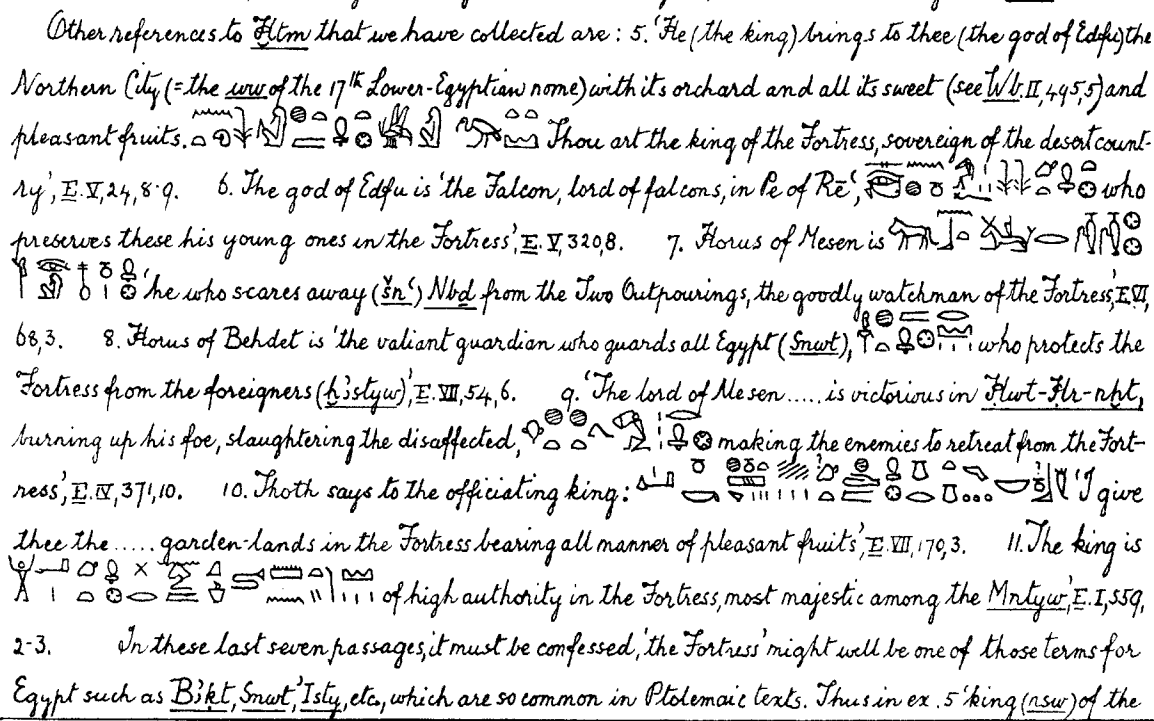 Other references to Ḫtm that we have collected are : 5. 'He (the king) brings to thee (the god of Edfu) the
Northern City (= the ww of the 17th Lower-Egyptian nome) with its orchard and all its sweet (see Wb. II, 495, 5) and
pleasant fruits. Thou art the king of the Fortress, sovereign of the desert count-
ry', E. V, 24, 8-9. 6. The god of Edfu is 'the Falcon, lord of falcons, in Pe of Rēʿ, who
preserves these his young ones in the Fortress', E. V 320, 8. 7. Horus of Mesen is
'he who scares away (šnʿ) Nbḏ from the Two Outpourings, the goodly watchman of the Fortress', E. VI,
68, 3. 8. Horus of Behdet is 'the valiant guardian who guards all Egypt (Snwt), who protects the
Fortress from the foreigners (ḫꜣstyw)', E. VII, 54, 6. 9. 'The lord of Mesen ..... is victorious in Ḥwt-Ḥr-nḫt,
burning up his foe, slaughtering the disaffected, making the enemies to retreat from the Fort-
ress', E. IV, 371, 10. 10. Thoth says to the officiating king : 'I give
thee the ..... garden-lands in the Fortress bearing all manner of pleasant fruits', E. VII, 170, 3. 11. The king is
of high authority in the Fortress, most majestic among the Mntyw', E. I, 559,
2-3. In these last seven passages, it must be confessed, 'the Fortress' might well be one of those terms for
Egypt such as Bꜣkt, Snwt, 'Isty, etc., which are so common in Ptolemaic texts. Thus in ex. 5 'king (nsw) of the